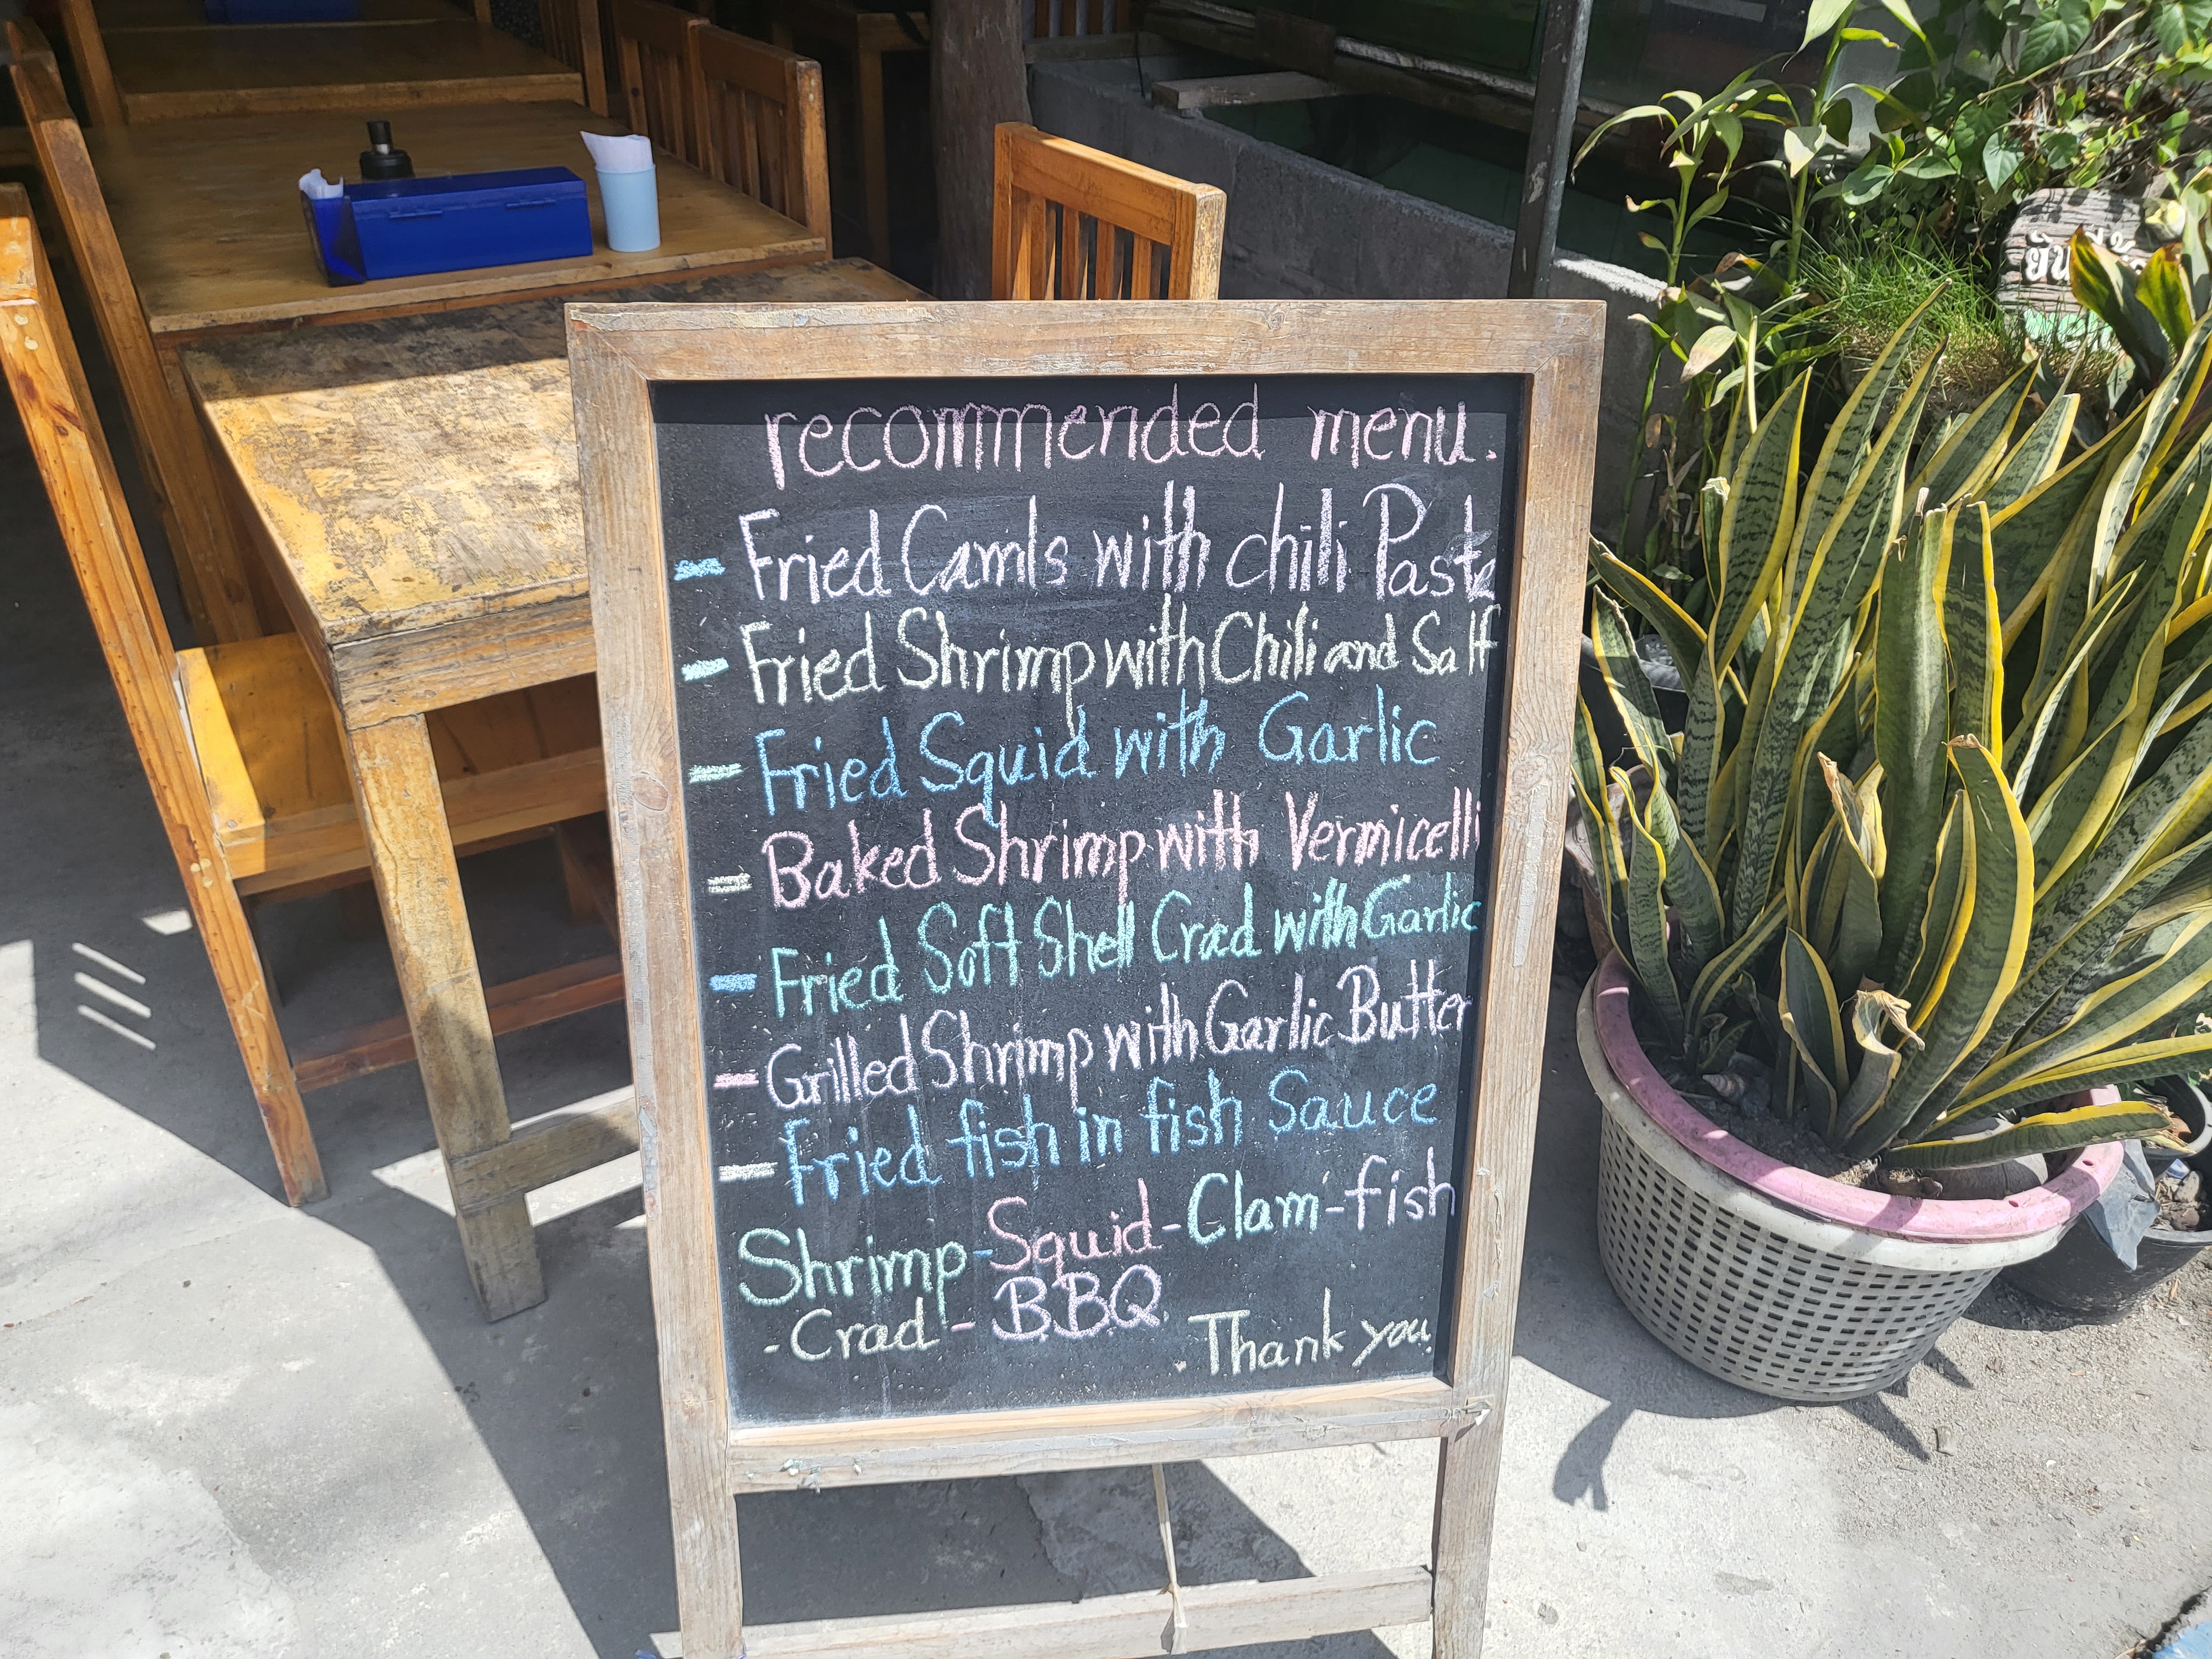 recommended menu.
- Fried Camls with chili Paste
- Fried Shrimp with Chili and Salt
= Fried Squid with Garlic
= Baked Shrimp with Vermicelli
= Fried Soft Shell Crad with Garlic
- Grilled Shrimp with Garlic Butter
= Fried fish in fish Sauce
Shrimp-Squid-Clam-fish
-Crad-BBQ
Thank you.